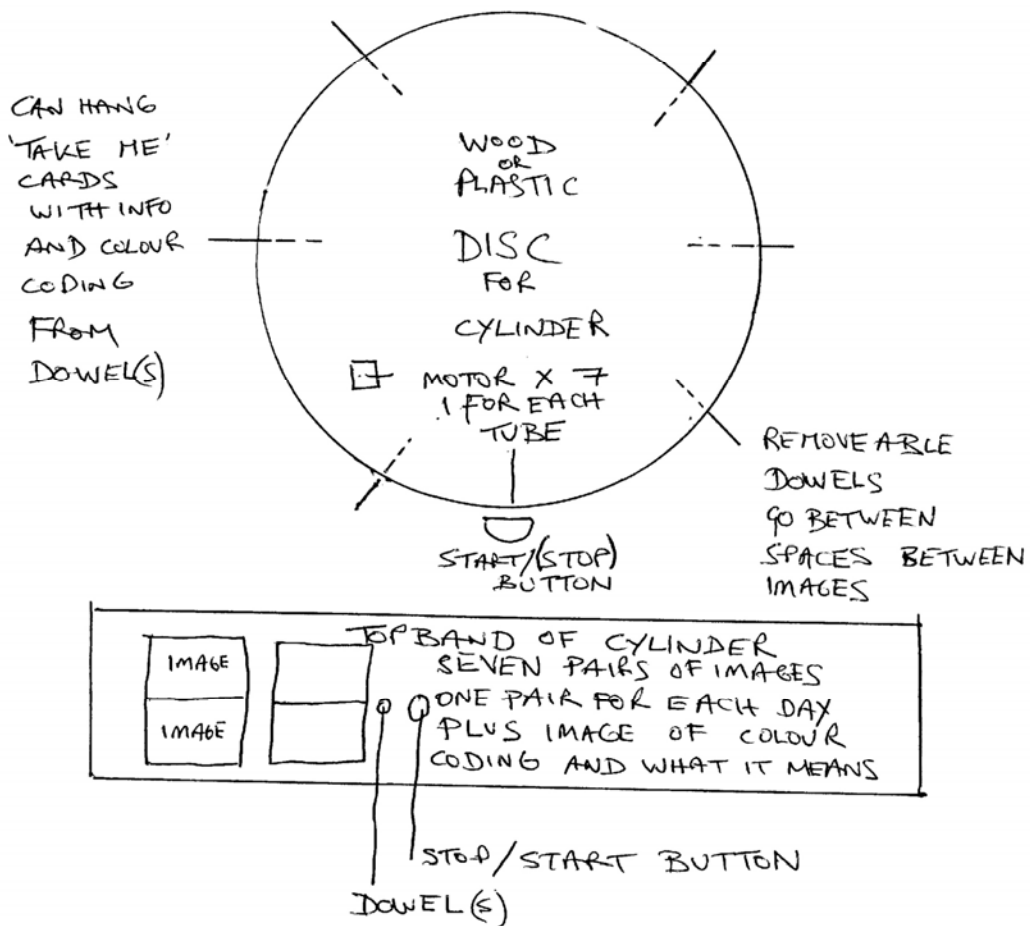 CAN HANG
'TAKE ME'
CARDS
WITH INFO
AND COLOUR
CODING
FROM
DOWEL(S)
WOOD
OR
PLASTIC
DISC
FOR
CYLINDER
MOTOR X 7
1 FOR EACH
TUBE
START/(STOP)
BUTTON
REMOVEABLE
DOWELS
GO BETWEEN
SPACES BETWEEN
IMAGES
TOP BAND OF CYLINDER
SEVEN PAIRS OF IMAGES
ONE PAIR FOR EACH DAY
PLUS IMAGE OF COLOUR
CODING AND WHAT IT MEANS
IMAGE
IMAGE
STOP/START BUTTON
DOWEL(S)